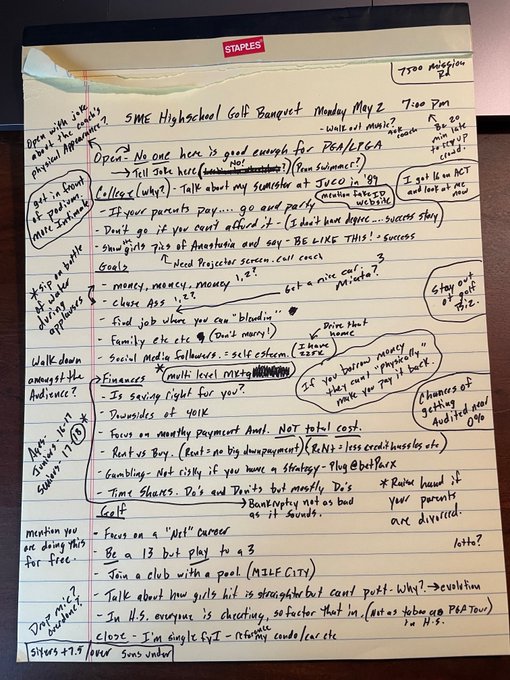 STAPLES
7500 mission Rd
SME Highschool Golf Banquet Monday May 2 7:00 pm
- Walk out music? ask coach
Be 20 min late to rev up crowd.
Open with joke about the coach's physical Appearance?
Open - No one here is good enough for PGA/LPGA
→ Tell Joke here No! (Penn swimmer?)
get in front of podium. more Intimate
College (why?) - Talk about my semister at JUCO in '89
mention fake ID website
I got 16 on ACT and look at me now
- If your parents pay.... go and party
- Don't go if you can't afford it - (I don't have degree.... success story)
- Show the girls pics of Anastasia and say - BE LIKE THIS! = success
↑ Need Projector screen. call coach
* sip on bottle of water during applauses
Goals
- money, money, money 1,2?
- Chase Ass 1,2?
Get a nice car. Miata? 3
- find job where you can "blend in"
- family etc etc (Don't marry!)
Drive that home
- Social Media followers. = self esteem. (I have 225K
Stay out of golf Biz.
Walk down amongst the Audience?
Finances * multi level mktg
If you borrow money they cant "physically" make you pay it back.
- Is saving right for you?
- Downsides of 401K
- Focus on monthly payment Amt. NOT total cost.
Chances of getting Audited near 0%
Ages - Juniors - 16-17 Seniors - 17-18 *
- Rent vs Buy. (Rent = no big downpayment) (Rent = less credit hussles etc)
- Gambling - Not risky if you have a strategy - Plug @betParx
- Time Shares. Do's and Don'ts but mostly Do's
→ Bankruptcy not as bad as it sounds.
* Raise hand if your parents are divorced.
Golf
mention you are doing this for free.
- Focus on a "Net" career
lotto?
- Be a 13 but play to a 3
- Join a club with a pool (MILF CITY)
- Talk about how girls hit is straighter but cant putt - Why? → evolution
- In H.S. everyone is cheating, so factor that in. (Not as taboo as PGA Tour) in H.S.
Drop mic? overdone?
close - I'm single fyI - reference my condo/car etc
sixers +7.5 over suns under